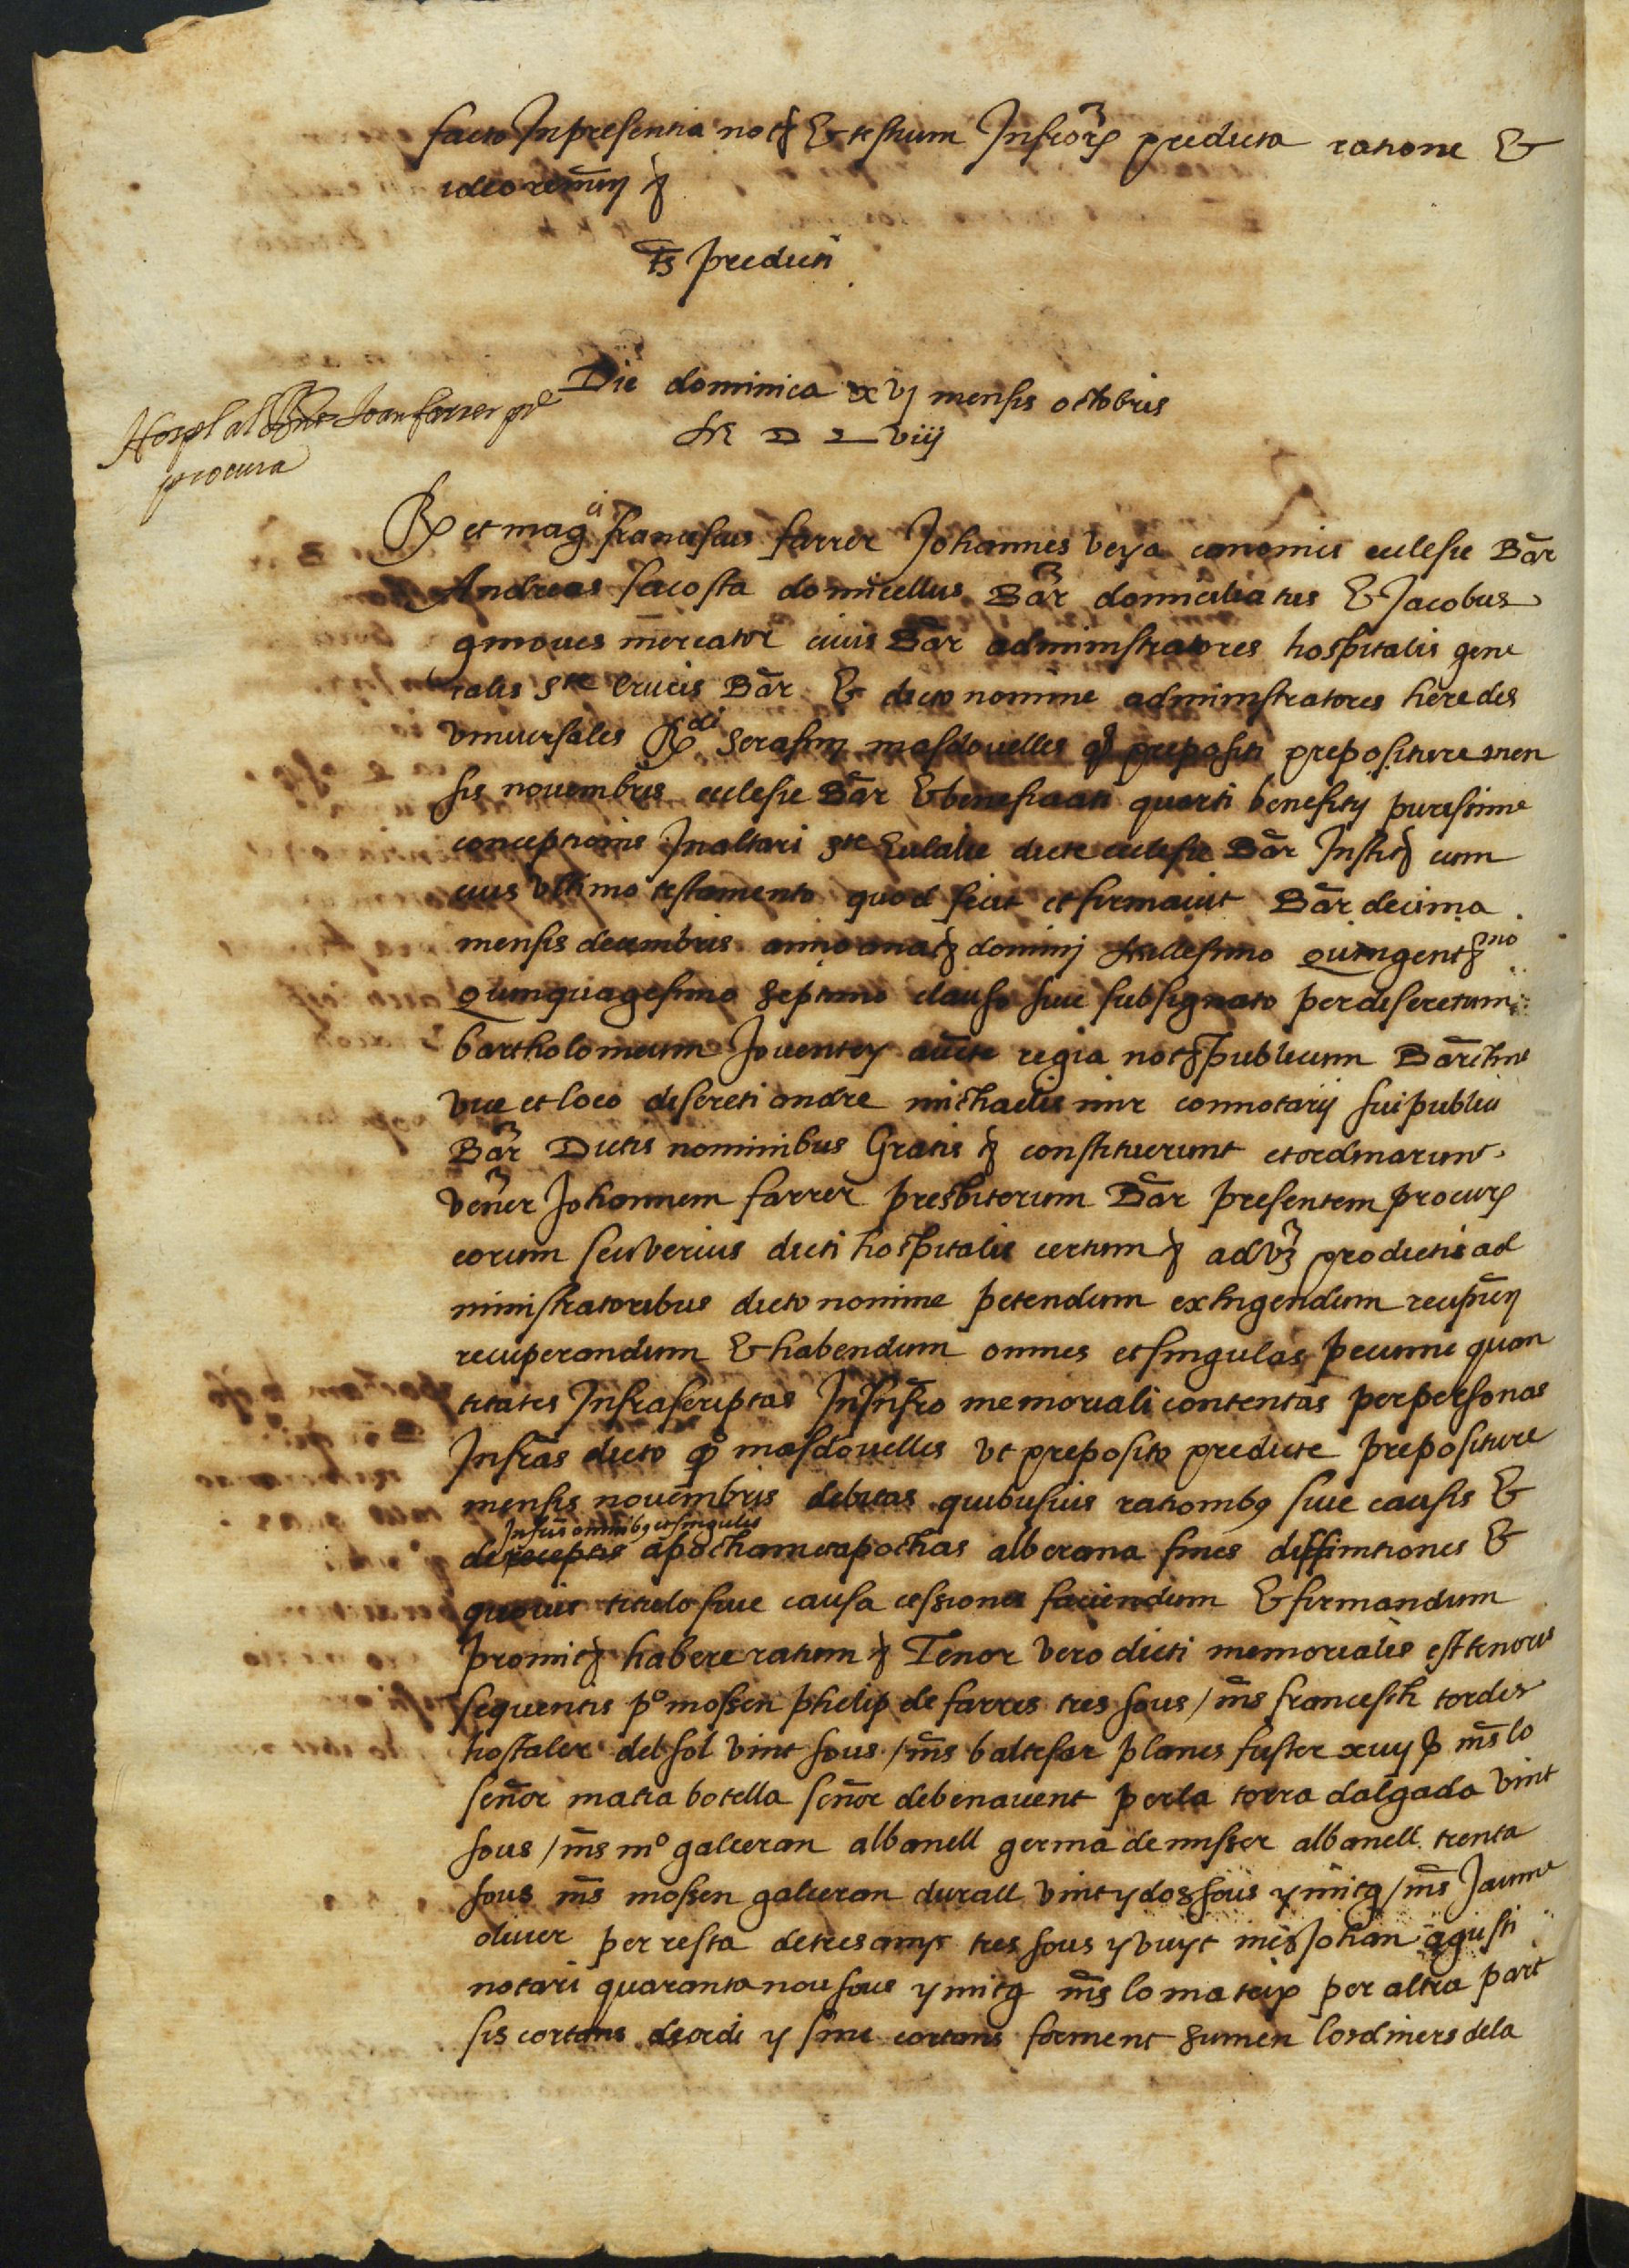 facto In presentia not[...] & testium Infrōrꝝ predicta ratione &
ideo remīny [...]
ts̄ predicti
Die dominica xvj mensis octobris
M D L viij
Hospl al Joan farrer pre
procura
Rx et magci franciscus farrer Johannes veya canonici ecclesie Bār
Andreas sacosta domicellus Bār domiciliatus & Jacobus
gimoues mercator ciuis Bār administratores hospitalis gene
ralis Ste Crucis Bār & dicto nomine administratores heredes
vniuersales Rdi Serafinj masdouelles qo prepositi prepositure men
sis nouembris ecclesie Bār & beneficiati quarti benefitij purissime
conceptionis In altari Ste Eulalie dicte ecclesie Bār Instit cum
eius vltimo testamento quod fecit et firmauit Bār decima
mensis decembris anno anat dominj Millesimo Quingentmo
Quinquagesimo Septimo clauso siue subsignato per discretum
bartholomeum Jouentey aucte regia not publicum Bār
vice et loco discreti andree michaelis mir connotarij sui publici
Bār Dictis nominibus Gratis constituerunt et ordinarunt
vener Johannem farrer presbiterum Bār presentem procurꝝ
eorum seu verius dicti hospitalis certum ad vꝫ pro dictis ad
ministratoribus dicto nomine petendum exhigendum recipiēn
recuperandum & habendum omnes et singulas pecunie quan
titates Infrascriptas In Infrō memoriali contentas per personas
Infrās dicto qo masdouelles vt preposito predicte prepositure
mensis nouembris debitas quibusuis rationibꝫ siue causis &
Infrīs omnibꝫ et singulis
de receptis apocham et apochas alberana fines diffinitiones &
quouis titulo siue causa cessiones faciendum & firmandum
promit habere ratum Tenor vero dicti memorialis est tenoris
sequentis po mossen phelip de farres tres sous / m̄s francesch tordes
hostaler del sol vint sous / m̄s baltesar planes fuster xuij ꝑ m̄s lo
señor matia botella señor de benauent per la torra dalgada vint
sous / m̄s mo galceran albanell germa de misser albanell trenta
sous m̄s mossen galceran durall vint y dos sous y mitg / m̄s Jaume
oliuer per resta de tres anys tres sous y vuyt mes Johan agusti
notari quaranta nou sous y mitg m̄s lo mateix per altra part
sis cortans de ordi y sinc cortans forment sumen los diners de la